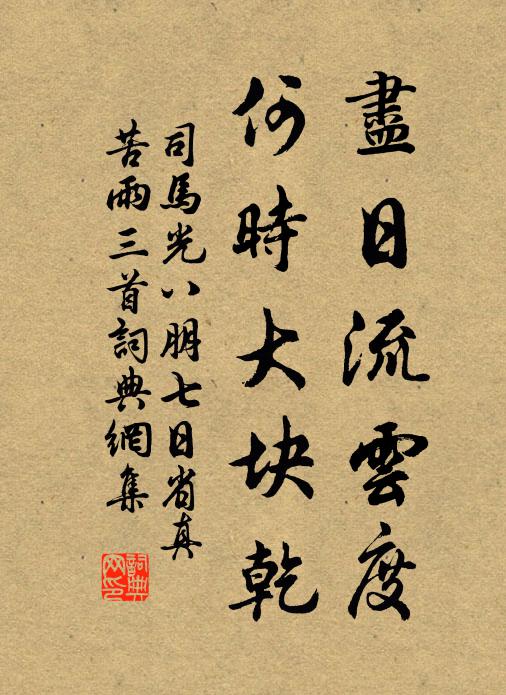 盡日流雲度
何時大块乾
司馬光八朋七日省真
苦雨三首詞典網集
詞典網印